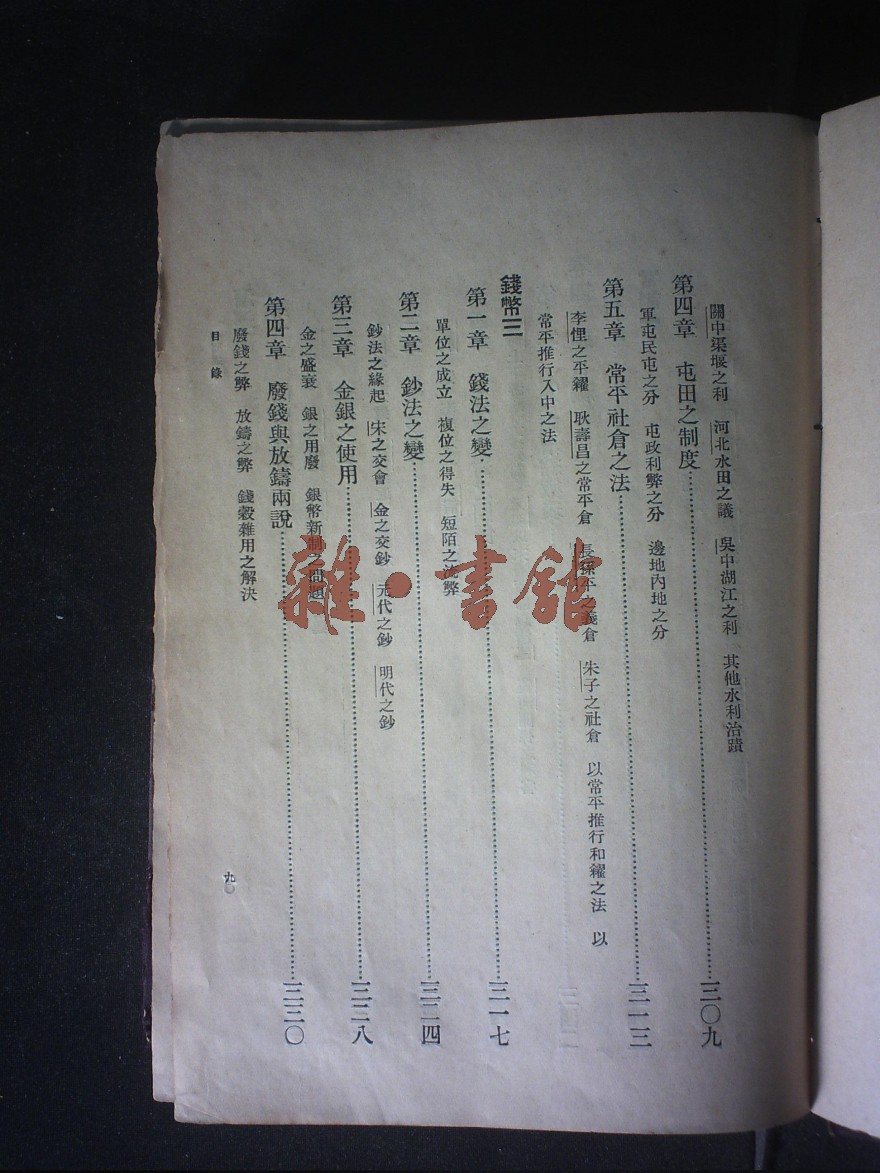 關中渠堰之利　河北水田之議　吳中湖江之利　其他水利治蹟
第四章　屯田之制度…………三〇九
軍屯民屯之分　屯政利弊之分　邊地內地之分
第五章　常平社倉之法…………三一三
李悝之平糴　耿壽昌之常平倉　長孫平之義倉　朱子之社倉　以常平推行和糴之法　以
常平推行入中之法
錢幣三
第一章　錢法之變…………三一七
單位之成立　複位之得失　短陌之流弊
第二章　鈔法之變…………三二四
鈔法之緣起　宋之交會　金之交鈔　元代之鈔　明代之鈔
第三章　金銀之使用…………三二八
金之盛衰　銀之用廢　銀幣新制之問題
第四章　廢錢與放鑄兩說…………三三〇
廢錢之弊　放鑄之弊　錢穀雜用之解決
目錄
九
雜·書館